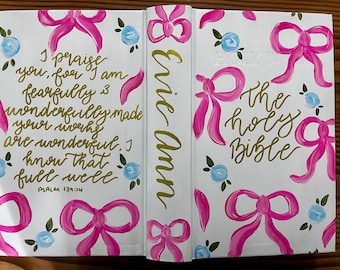 I praise
you, for I am
fearfully &
wonderfully made
your works
are wonderful, I
know that
full well
PSALM 139:14
Evie Ann
The
Holy
Bible